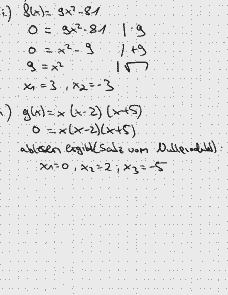 i.) f(x) = 9x² - 81
0 = 9x² - 81 | : 9
0 = x² - 9 | + 9
9 = x² | √
x₁ = 3, x₂ = -3
.) g(x) = x (x-2) (x+5)
0 = x (x-2) (x+5)
ablesen ergibt (Satz vom Nullprodukt):
x₁ = 0, x₂ = 2, x₃ = -5